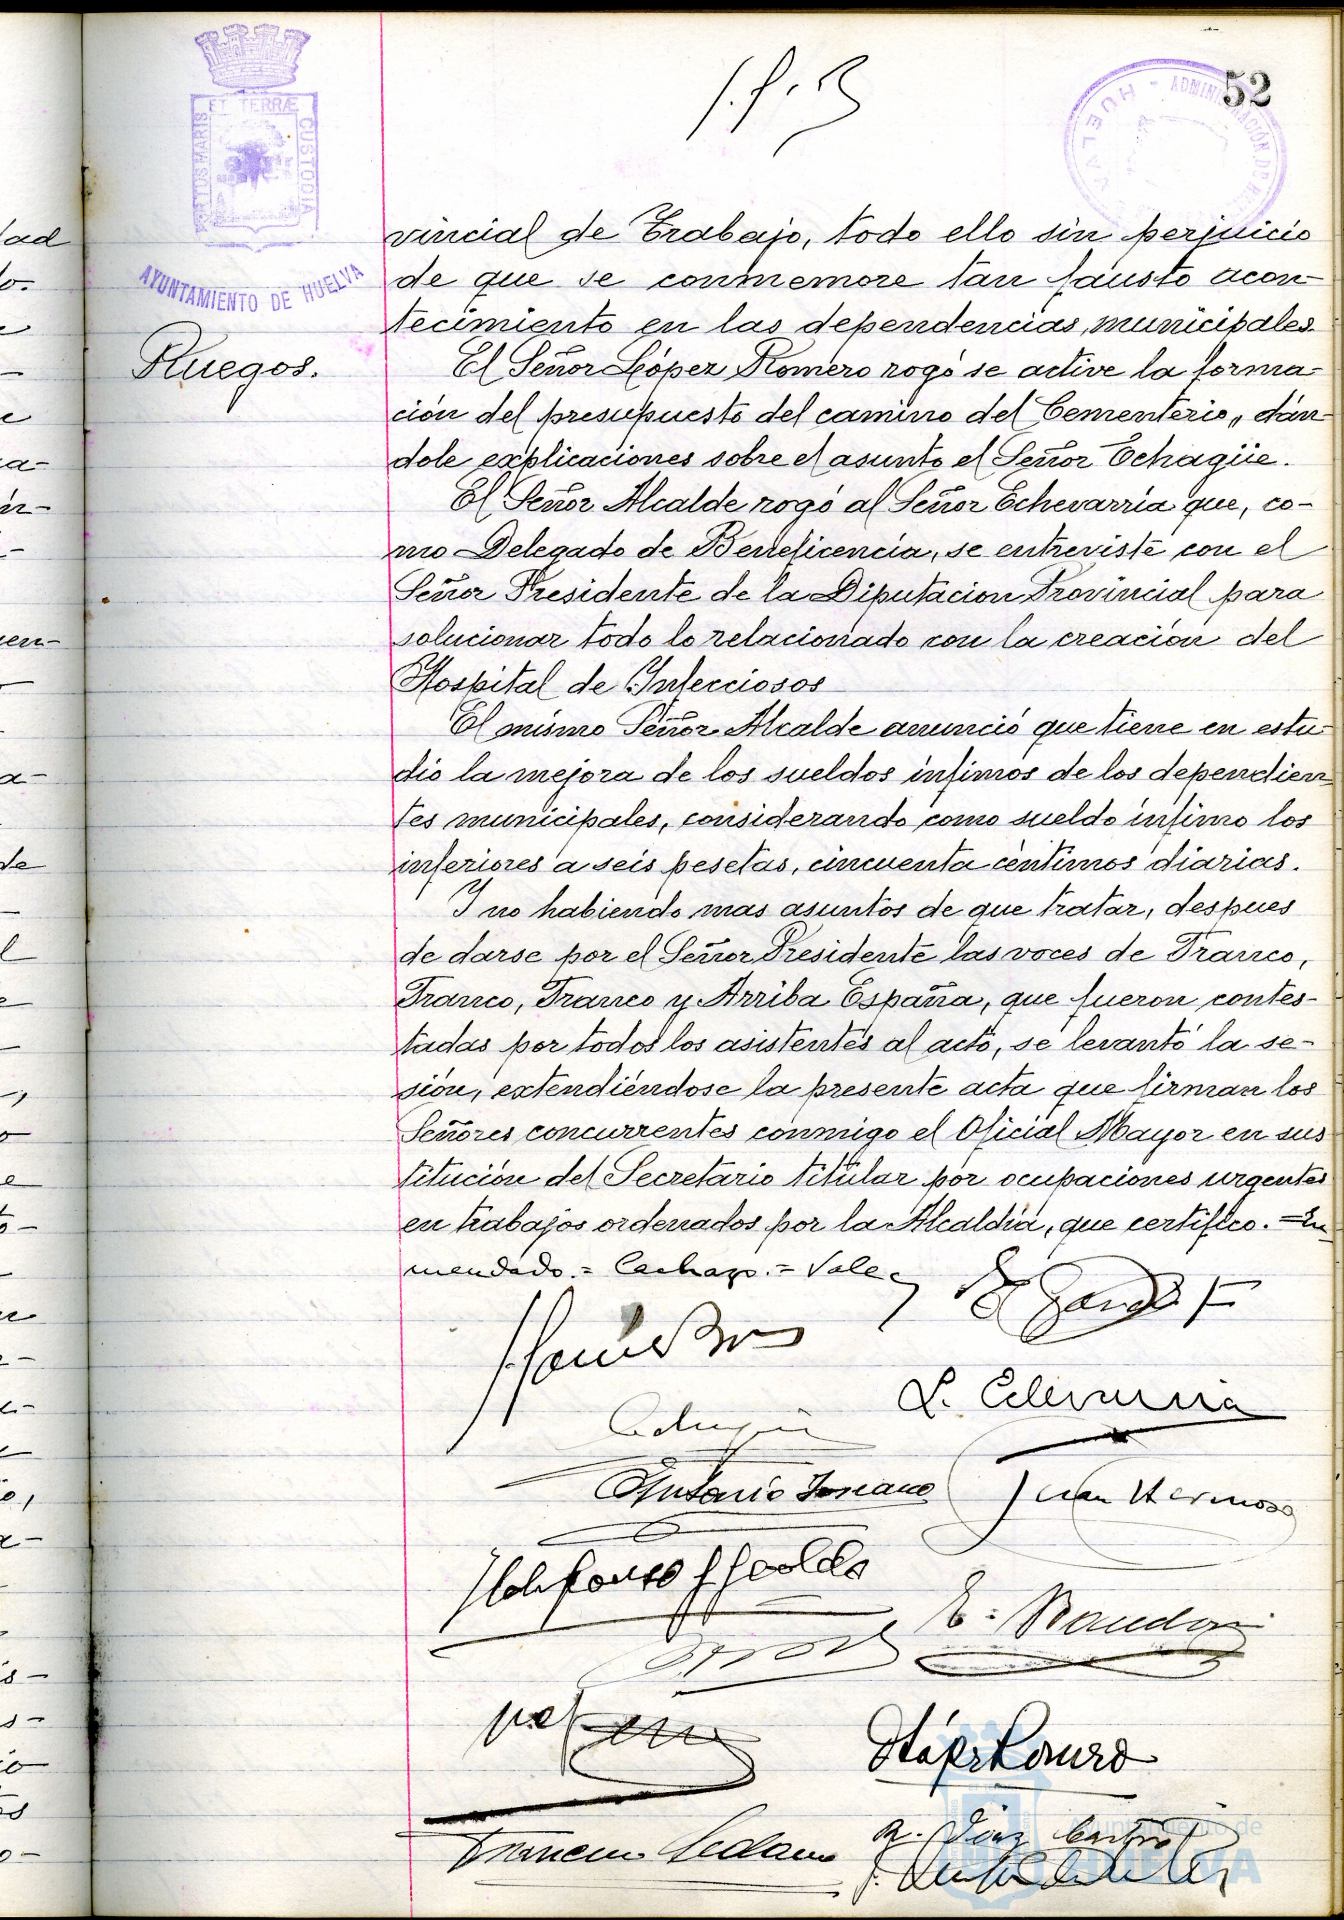 52
PORTUS MARIS ET TERRÆ CUSTODIA
AYUNTAMIENTO DE HUELVA
HUELVA - ADMINISTRACIÓN DE
vincial de Trabajo, todo ello sin perjuicio
de que se conmemore tan fausto acon-
tecimiento en las dependencias municipales.
Ruegos.
El Señor López Romero rogó se active la forma-
ción del presupuesto del camino del Cementerio, dán-
dole explicaciones sobre el asunto el Señor Echagüe.
El Señor Alcalde rogó al Señor Echevarría que, co-
mo Delegado de Beneficencia, se entreviste con el
Señor Presidente de la Diputacion Provincial para
solucionar todo lo relacionado con la creación del
Hospital de Infecciosos
El mismo Señor Alcalde anunció que tiene en estu-
dio la mejora de los sueldos ínfimos de los dependien-
tes municipales, considerando como sueldo ínfimo los
inferiores a seis pesetas, cincuenta céntimos diarias.
Y no habiendo mas asuntos de que tratar, despues
de darse por el Señor Presidente las voces de Franco,
Franco, Franco y Arriba España, que fueron contes-
tadas por todos los asistentes al acto, se levantó la se-
sión, extendiéndose la presente acta que firman los
Señores concurrentes conmigo el Oficial Mayor en sus
titución del Secretario titular por ocupaciones urgentes
en trabajos ordenados por la Alcaldía, que certifico. = En
mendado. = = Vale
L. Echevarria
Echagüe
Antonio Soriano
Juan Hermoso
Ildefonso
López Romero
R. Díaz
Ayuntamiento de
HUELVA